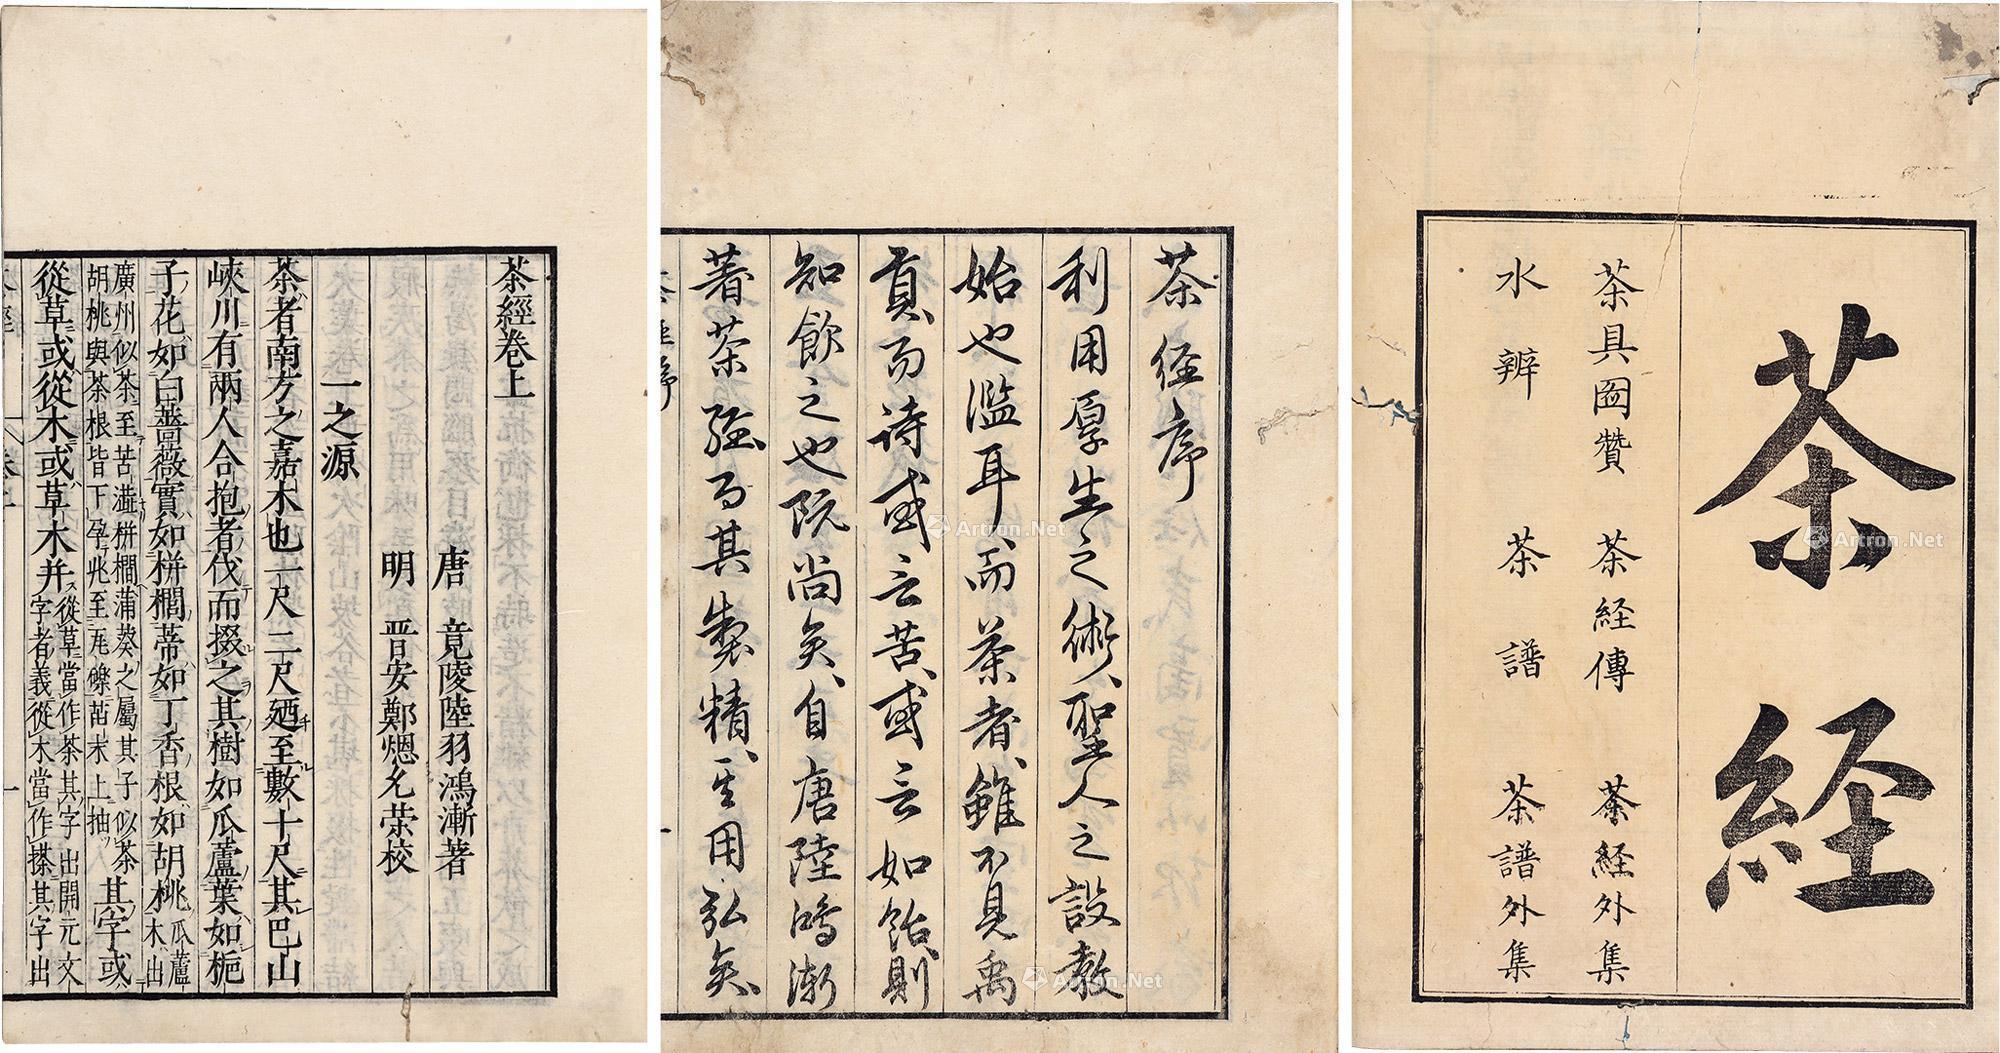 茶経
茶具図賛 茶経傳 茶経外集
水辨 茶譜 茶譜外集
茶经序
利用厚生之術聖人之設教
始也濫耳而茶者雖不見禹
貢而詩或言苦或言如飴則
知飲之也既尚矣自唐陸鴻漸
著茶經而其製精其用弘矣
茶經卷上
唐 竟陵陸羽鴻漸著
明 晋安鄭熜允荣校
一之源
茶者南方之嘉木也一尺二尺廼至數十尺其巴山
峽川有兩人合抱者伐而掇之其樹如瓜蘆葉如梔
子花如白薔薇實如栟櫚蒂如丁香根如胡桃瓜蘆木出
廣州似茶至苦澁栟櫚蒲葵之屬其子似茶
胡桃與茶根皆下孕兆至瓦礫苗木上抽
其字或
從草或從木或草木并
從草當作茶其字出開元文
字者義從木當作搽其字出
Artron.Net
Artron.Net
Artron.Net